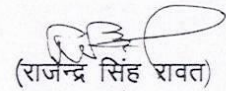 (राजेन्द्र सिंह रावत)